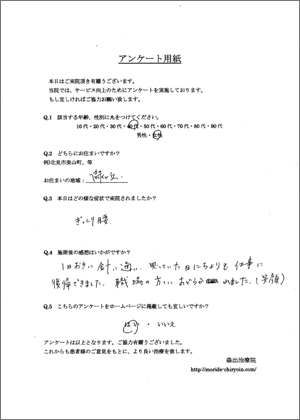 アンケート用紙
本日はご来院頂き有難うございます。
当院では、サービス向上のためにアンケートを実施しております。
もし宜しければご協力お願い致します。
Q.1 該当する年齢、性別に丸をつけてください。
10代・20代・30代・40代・50代・60代・70代・80代・90代
男性・女性
Q.2 どちらにお住まいですか?
例)北見市美山町、等
お住まいの地域:
Q.3 本日はどの様な症状で来院されましたか?
ぎっくり腰
Q.4 施術後の感想はいかがですか?
1日おきに針に通い、思っていた日にちよりも仕事に
復帰できました。職場の方に、おどろかれました。(笑顔)
Q.5 こちらのアンケートをホームページに掲載しても宜しいですか?
はい ・ いいえ
アンケートは以上となります。ご協力有難うございました。
これからも患者様のご意見をもとに、より良い治療を致します。
森出治療院
http://moride-chiryoin.com/